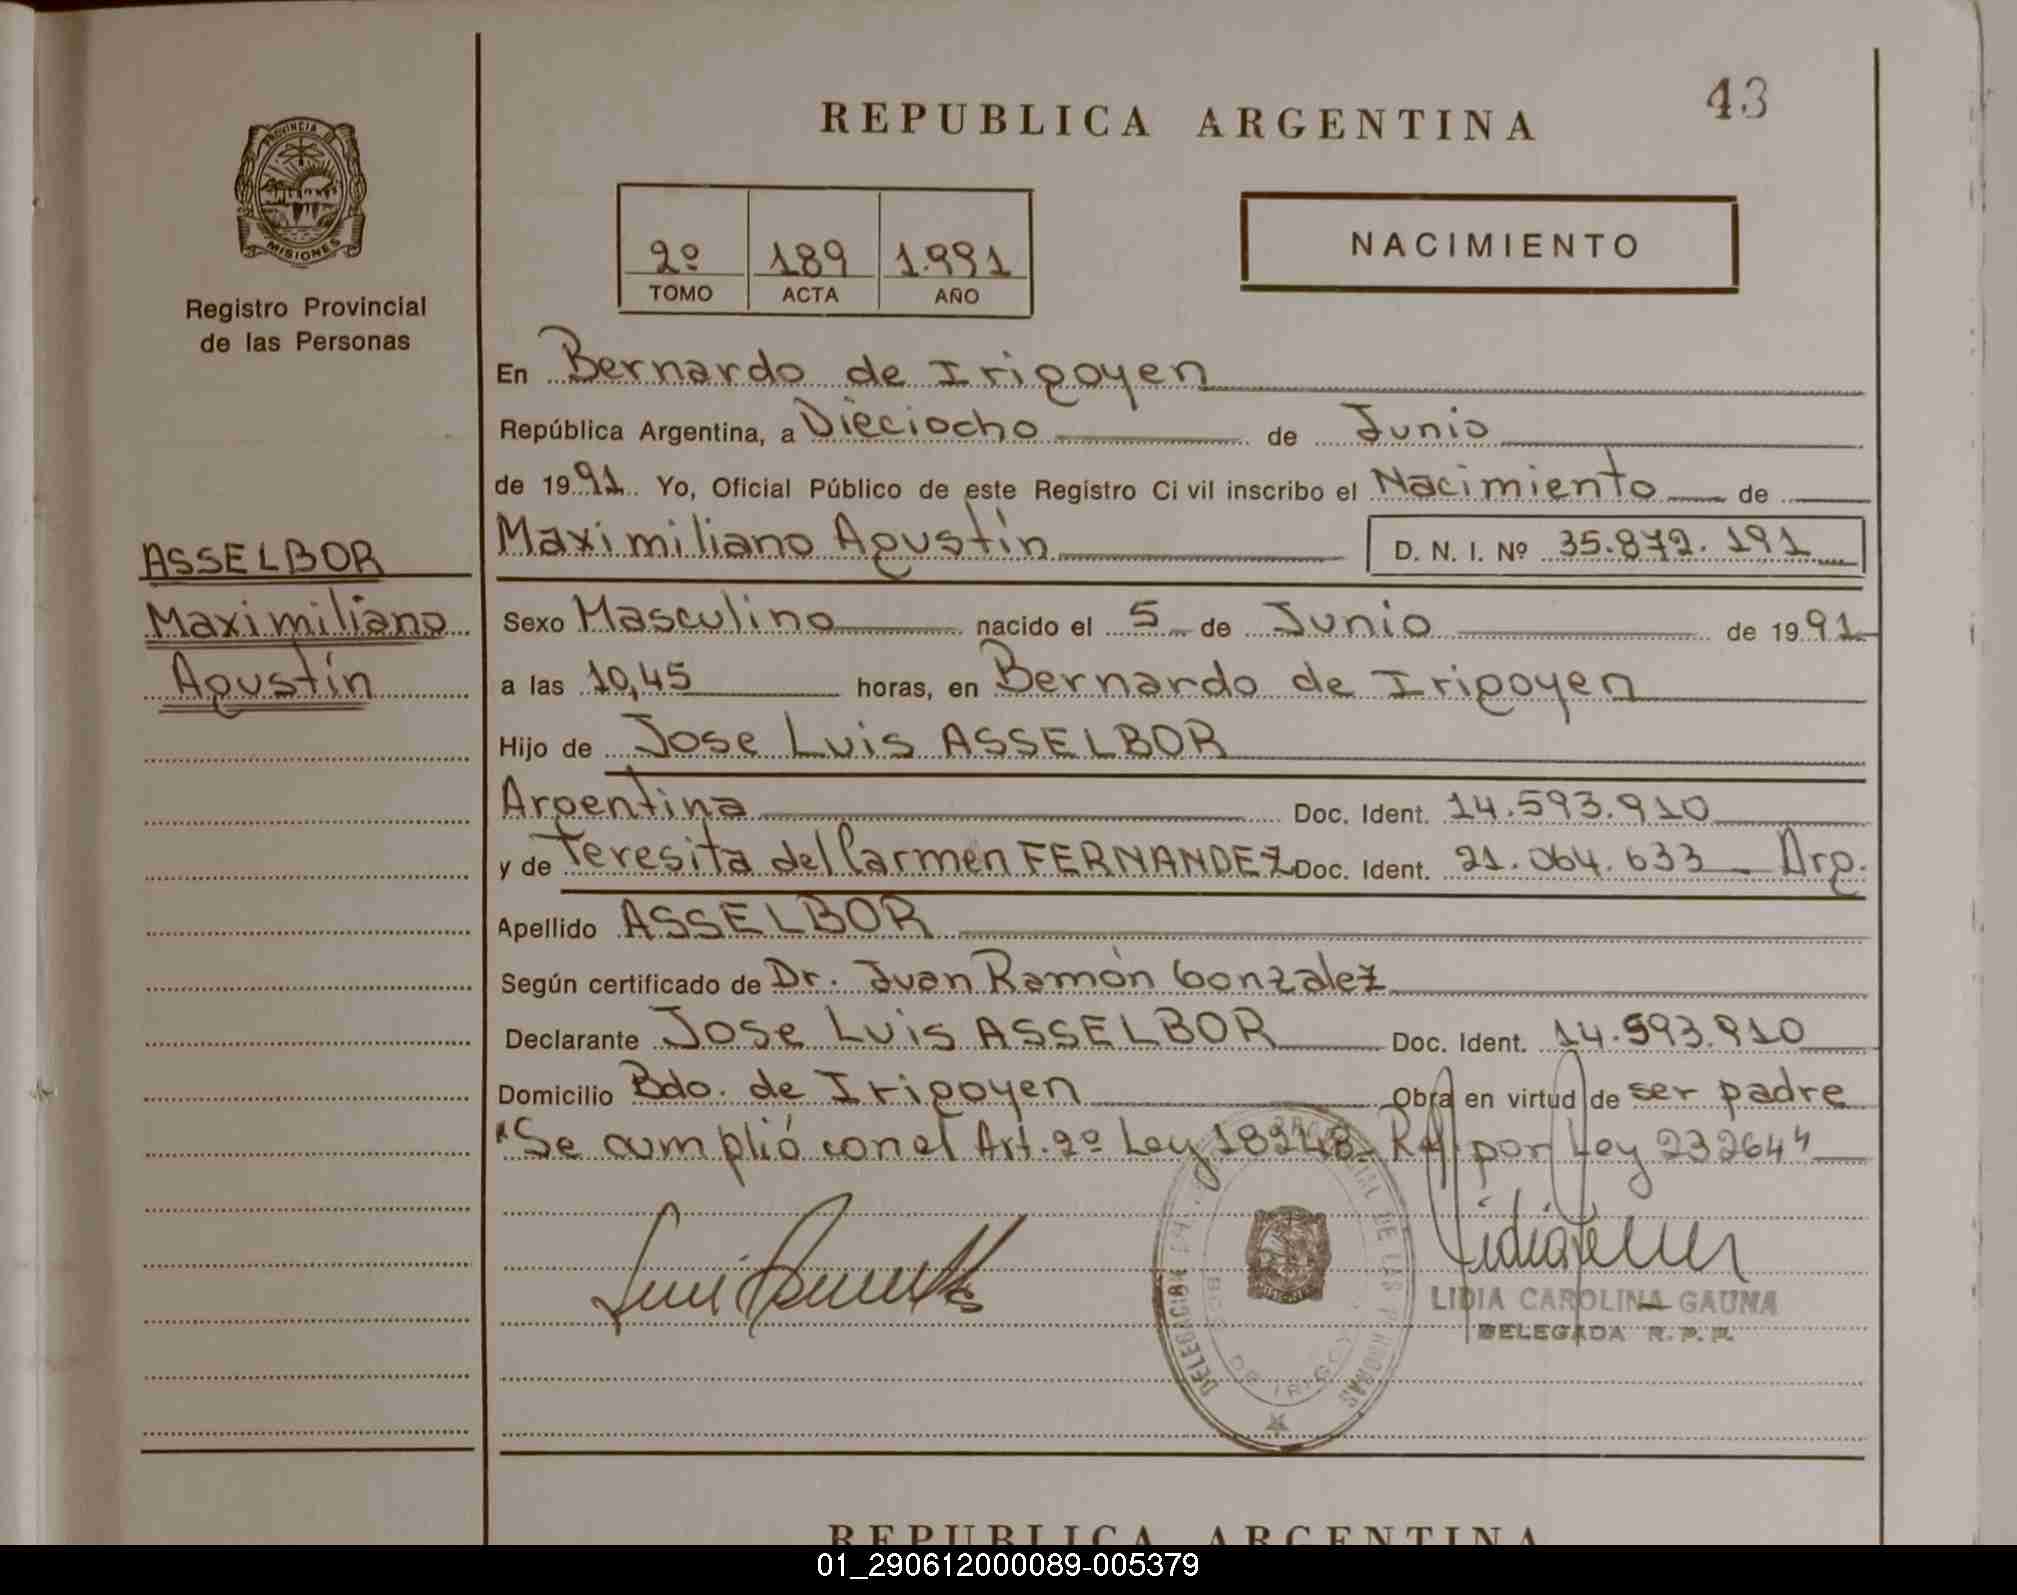 43
REPUBLICA ARGENTINA
PROVINCIA DE
MISIONES
Registro Provincial
de las Personas
2º 189 1.991
TOMO ACTA AÑO
NACIMIENTO
En Bernardo de Irigoyen
República Argentina, a Dieciocho de Junio
de 1991 Yo, Oficial Público de este Registro Civil inscribo el Nacimiento de
Maximiliano Agustín D. N. I. Nº 35.872.191
ASSELBOR
Maximiliano
Agustín
Sexo Masculino nacido el 5 de Junio de 1991
a las 10,45 horas, en Bernardo de Irigoyen
Hijo de Jose Luis ASSELBOR
Argentina Doc. Ident. 14.593.910
y de Teresita del Carmen FERNANDEZ Doc. Ident. 21.064.633 Arg.
Apellido ASSELBOR
Según certificado de Dr. Juan Ramón Gonzalez
Declarante Jose Luis ASSELBOR Doc. Ident. 14.593.910
Domicilio Bdo. de Irigoyen Obra en virtud de ser padre
"Se cumplió con el Art. 2º Ley 18248 por Ley 23264"
LIDIA CAROLINA GAUNA
DELEGADA R. P. P.
REPUBLICA ARGENTINA
01_290612000089-005379